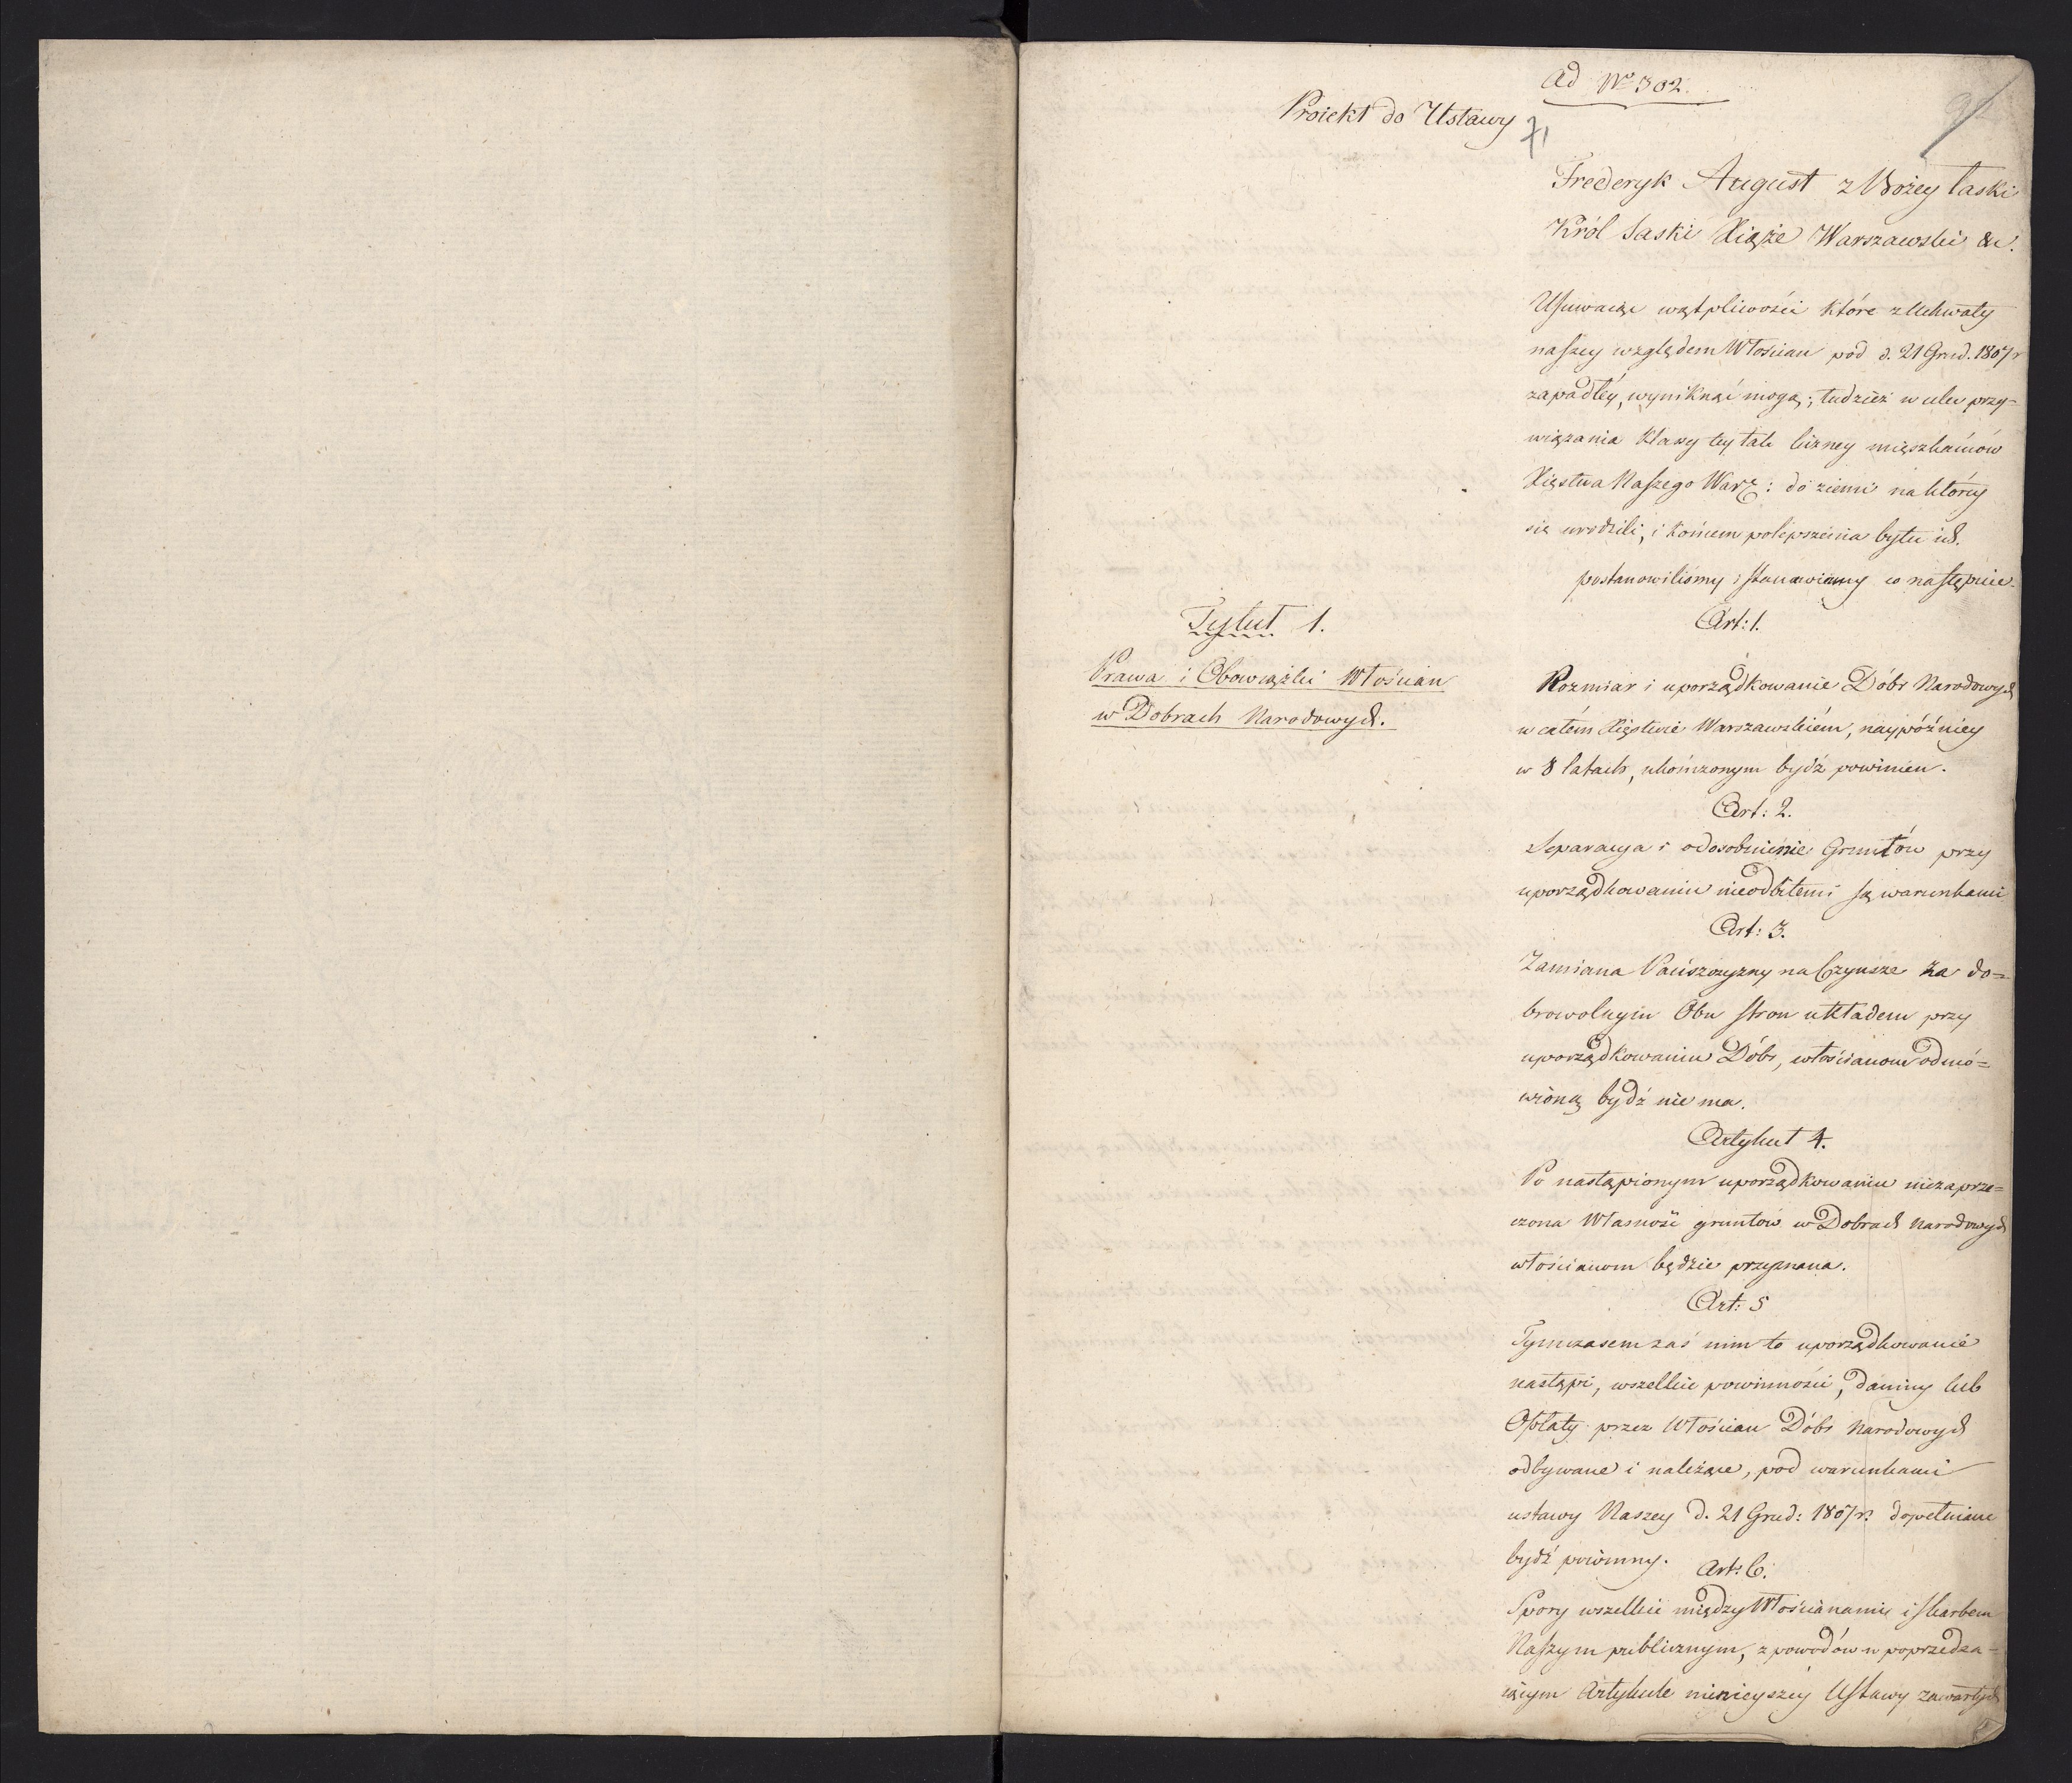 Ad No 302.
Proiekt do Ustawy
71
Frederyk August z Bożey Łaski
Król Saski Xiąże Warszawski &c.
Usuwaiąc wątpliwości które z Uchwały
naszey względem Włościan pod d. 21 Grud. 1807 r
zapadłéy, wyniknąć mogą; tudzież w celu przy=
wiązania klassy tey tak liczney mieszkańców
Xięstwa Naszego Warz: do ziemi na którey
się urodzili, i końcem polepszenia bytu ich.
postanowiliśmy i stanowiemy co następuie.
Tytuł 1.
Prawa i Obowiązki Włościan
w Dobrach Narodowych.
Art: 1.
Rozmiar i uporządkowanie Dóbr Narodowych
w całém Xięstwie Warszawskiém, naypóźniey
w 8 latach, ukończonym bydź powinien.
Art: 2.
Separacya i odosobnienie Gruntów przy
uporządkowaniu nieodbitemi są warunkami
Art: 3.
Zamiana Pańszczyzny na Czynsze za do=
browolnym Obu stron układem przy
uporządkowaniu Dóbr, włościanom odmó=
wioną bydź nie ma.
Artykuł 4.
Po nastąpionym uporządkowaniu niezaprze=
czona Własność gruntów w Dobrach Narodowych
włościanom będzie przyznana.
Art: 5
Tymczasem zaś nim to uporządkowanie
nastąpi, wszelkie powinności, daniny lub
Opłaty przez Włościan Dóbr Narodowych
odbywane i należące, pod warunkami
ustawy Naszey d. 21 Grud: 1807 r. dopełniane
bydź powinny.
Art: 6.
Spory wszelkie między Włościanami i Skarbem
Naszym publicznym, z powodów w poprzedza=
iącym Artykule ninieyszéy Ustawy zawartych